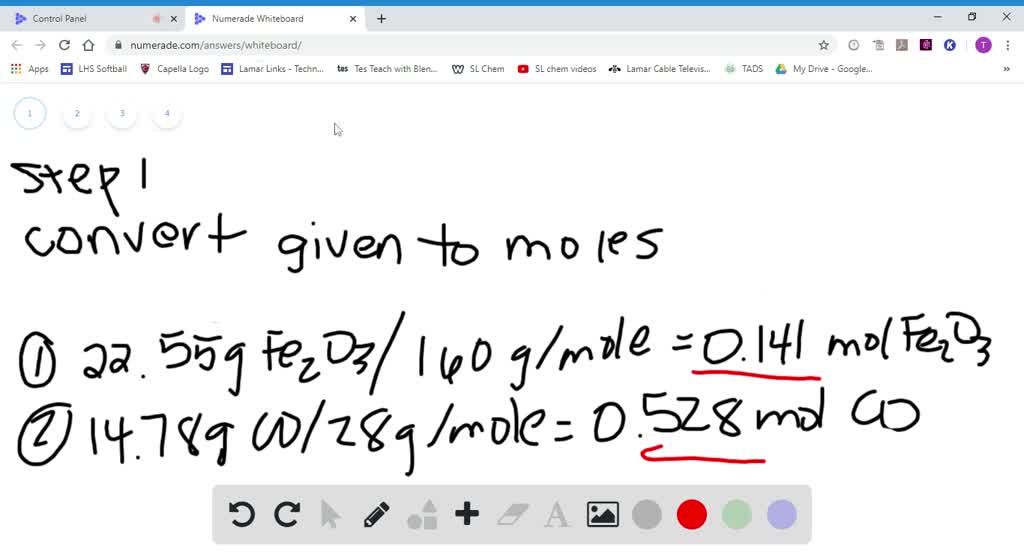 Control Panel
Numerade Whiteboard
numerade.com/answers/whiteboard/
T
Apps LHS Softball Capella Logo Lamar Links - Techn... tes Tes Teach with Blen... SL Chem SL chem videos Lamar Cable Televis... TADS My Drive - Google... »
1 2 3 4
step 1
convert given to moles
① 22.55g Fe₂O₃/160 g/mole = 0.141 mol Fe₂O₃
② 14.78g CO/28g/mole = 0.528 mol CO
A